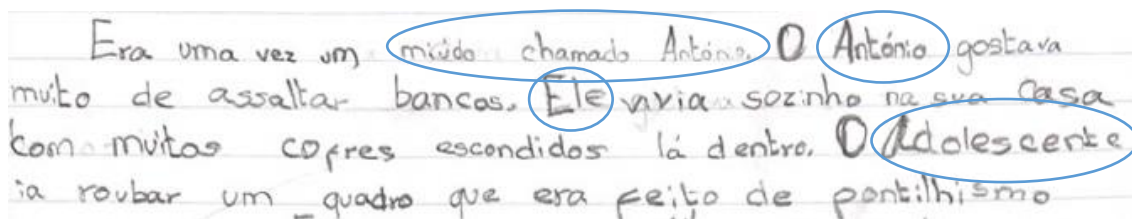 Era uma vez um miúdo chamado António. O António gostava
muito de assaltar bancos. Ele vivia sozinho na sua casa
com muitos cofres escondidos lá dentro. O Adolescente
ia roubar um quadro que era feito de pontilhismo